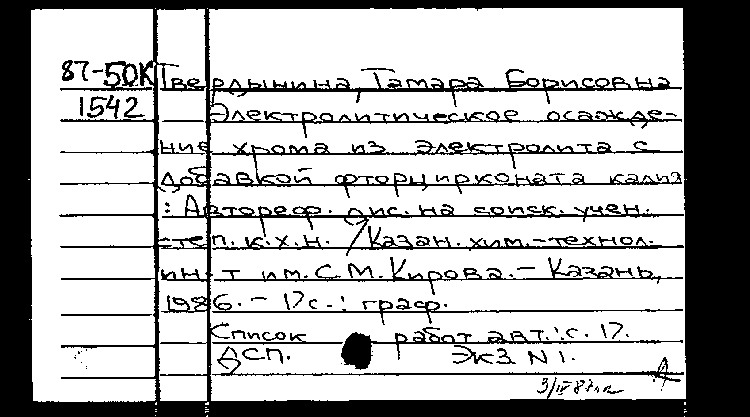 87-50К Твердынина, Тамара Борисовна
1542 Электролитическое осажде-
ние хрома из электролита с
добавкой фторцирконата калия
: Автореф. дис. на соиск. учен.
степ. к.х.н. / Казан. хим.-технол.
ин-т им. С.М. Кирова. - Казань,
1986. - 17с. : граф.
Список работ авт.: с. 17.
ДСП. Экз N1.
3/IV 87г.